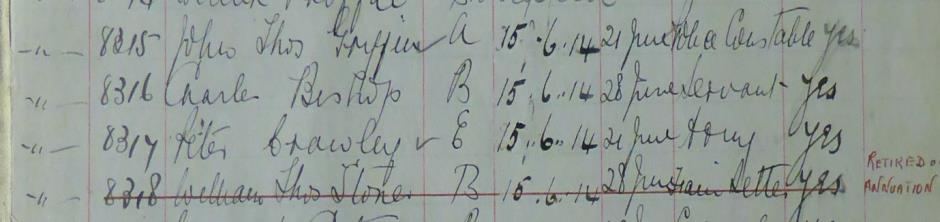 -"- 8315 John Thos Griffin A 15.6.14 21 June Police Constable yes
-"- 8316 Charles Bishop B 15.6.14 28 June Servant yes
-"- 8317 Peter Crawley E 15.6.14 21 June Army yes
RETIRED
-"- 8318 William Thos Stoner B 15.6.14 28 June yes
ANNUATION